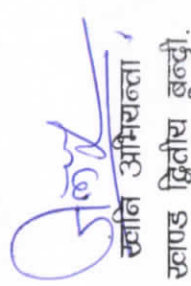 खनि अभियन्ता
खण्ड द्वितीय बून्दी.